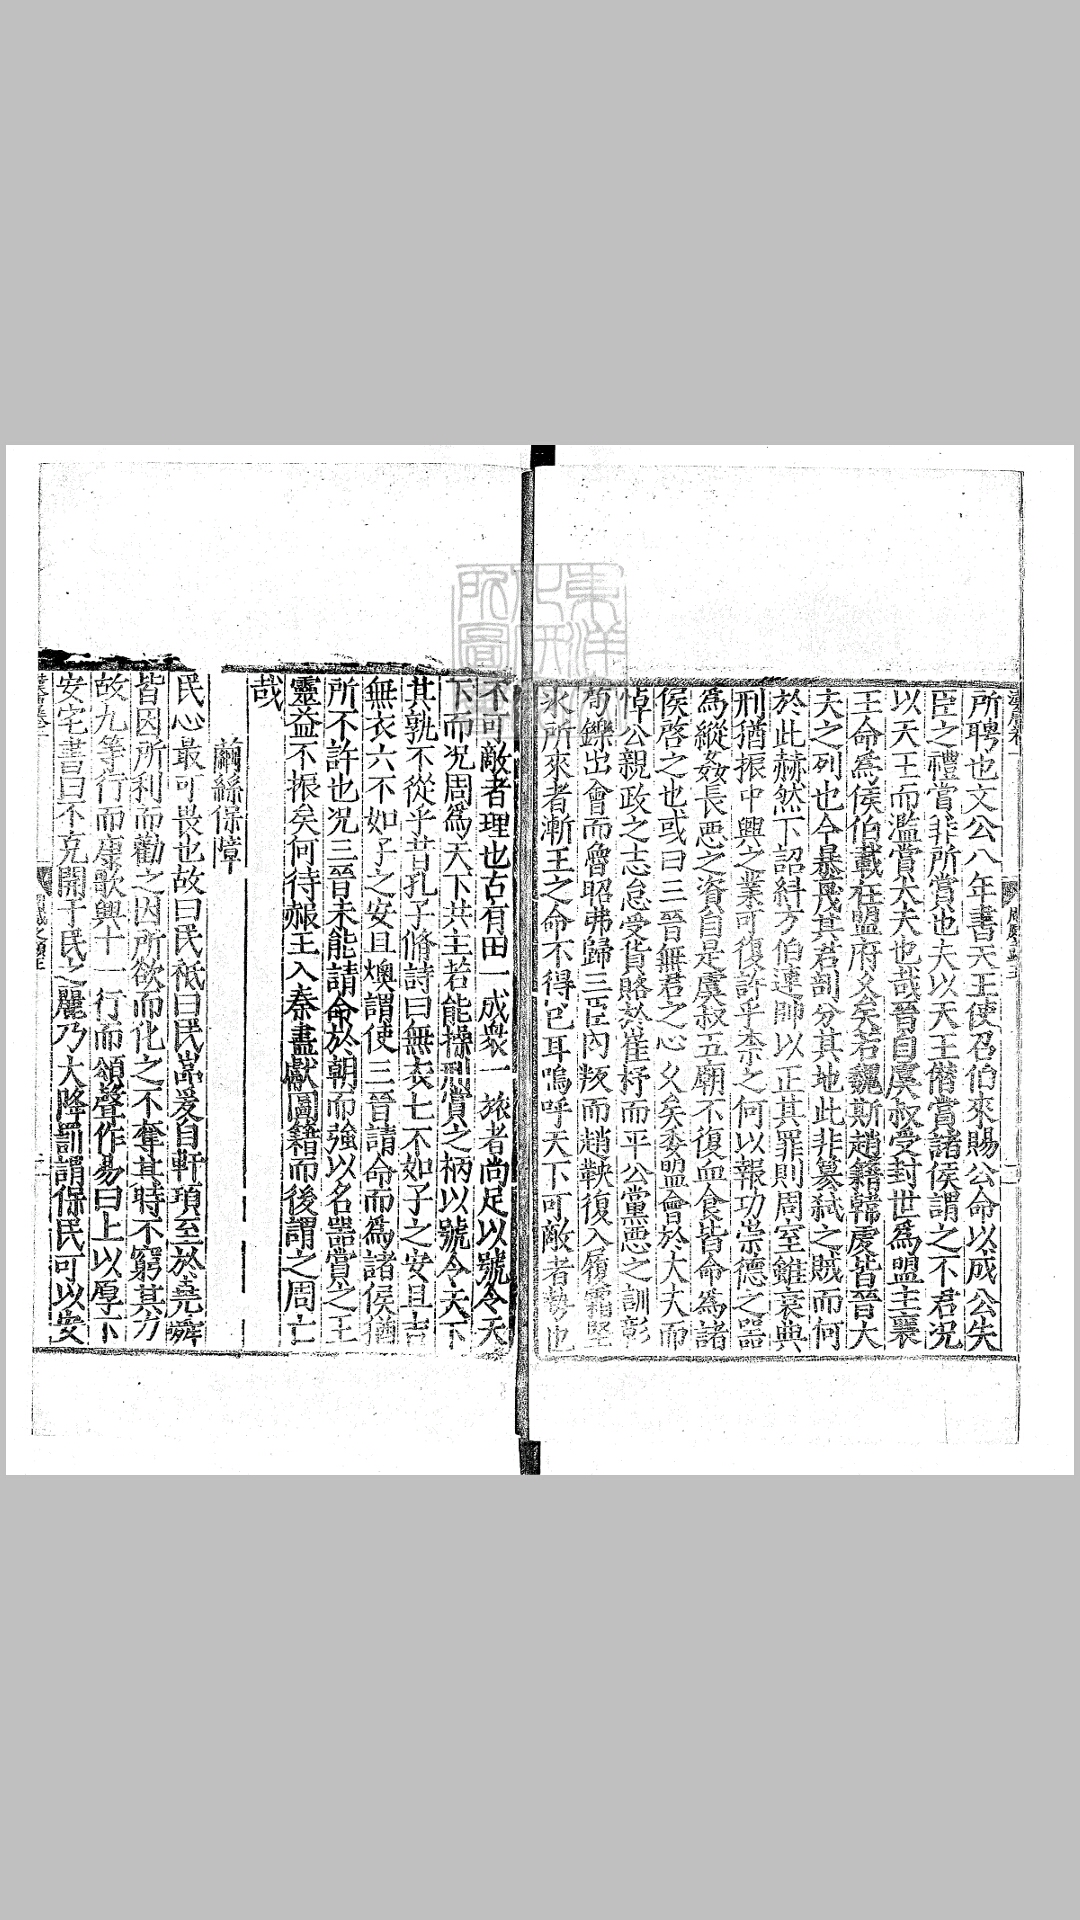 所聘也文公八年書天王使召伯來賜公命以成公失
臣之禮嘗非所嘗也夫以天王僭嘗諸侯謂之不君况
以天王而濫賞大夫也哉晉自虞叔受封世爲盟主襄
王命爲侯伯載在盟府久矣若魏斯趙籍韓虔皆晉大
夫之列也今暴蔑其君剖分其地此非簒弑之賊而何
於此赫然下詔糾方伯連帥以正其罪則周室雖衰典
刑猶振中興之業可復許乎柰之何以報功崇德之器
爲縱姦長悪之資自是虞叔五廟不復血食皆命爲諸
侯啓之也或曰三晉無君之心乆矣委盟會於大夫而
悼公親政之志怠受貨賂於崔杼而平公黨悪之訓彰
荀鑠出會而魯昭弗歸三臣內叛而趙鞅復入履霜堅
氷所來者漸王之命不得已耳嗚呼天下可敵者勢也
不可敵者理也古有田一成衆一旅者尚足以號令天
下而况周爲天下共主若能操刑賞之柄以號令天下
其孰不從乎昔孔子脩詩曰無衣七不如子之安且吉
無衣六不如子之安且燠謂使三晉請命而爲諸侯猶
所不許也况三晉未能請命於朝而強以名器賞之王
靈益不振矣何待赧王入秦盡獻圖籍而後謂之周亡
哉
繭絲保障
民心最可畏也故曰民祗曰民嵓爰自軒頊至於堯舜
皆因所利而勸之因所欲而化之不奪其時不窮其力
故九等行而康歌興十一行而頌聲作易曰上以厚下
安宅書曰不克開于民之麗乃大降罰謂保民可以安